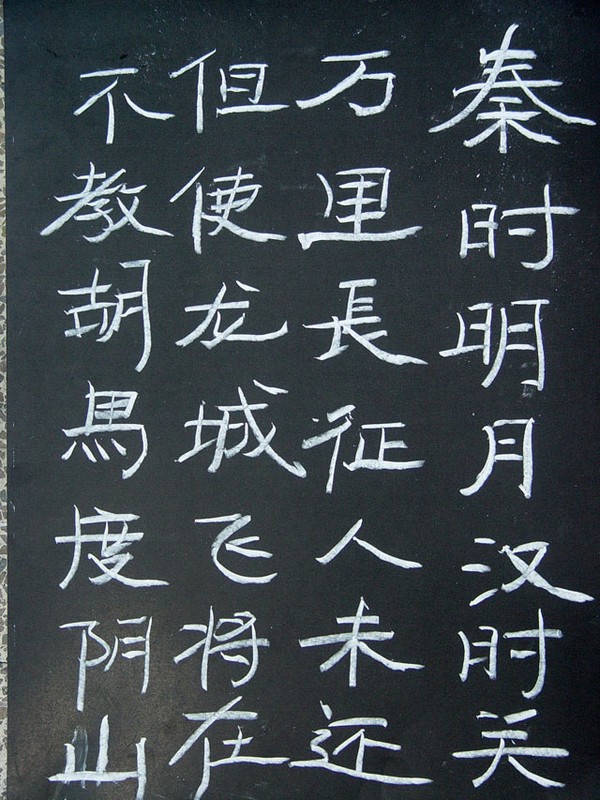 秦时明月汉时关
万里長征人未还
但使龙城飞将在
不教胡馬度阴山